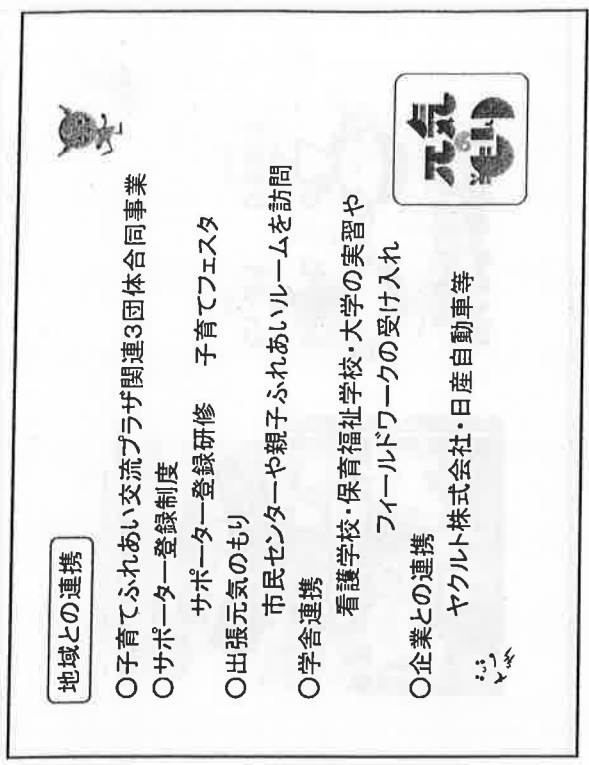 地域との連携
○子育てふれあい交流プラザ関連3団体合同事業
○サポーター登録制度
サポーター登録研修　子育てフェスタ
○出張元気のもり
市民センターや親子ふれあいルームを訪問
○学舎連携
看護学校・保育福祉学校・大学の実習や
フィールドワークの受け入れ
○企業との連携
ヤクルト株式会社・日産自動車等
元気のもり